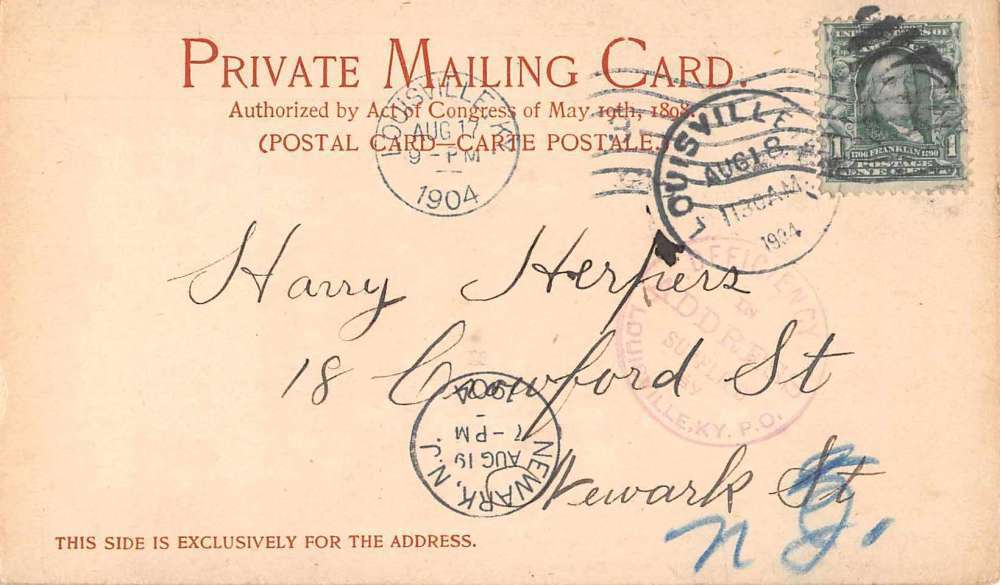 PRIVATE MAILING CARD.
Authorized by Act of Congress of May 19th, 1898.
(POSTAL CARD—CARTE POSTALE.)
LOUISVILLE, KY.
AUG 17
9 - PM
1904
LOUISVILLE
AUG 18
1130AM
1904
UNITED STATES OF
AMERICA
1 1
1706 FRANKLIN 1790
POSTAGE
ONE CENT
DEFICIENCY
IN
ADDRESS
SUPPLIED
BY
LOUISVILLE, KY. P.O.
Harry Herpers
18 Crawford St
Newark St
N J.
NEWARK, N.J.
AUG 19
7 - PM
1904
THIS SIDE IS EXCLUSIVELY FOR THE ADDRESS.